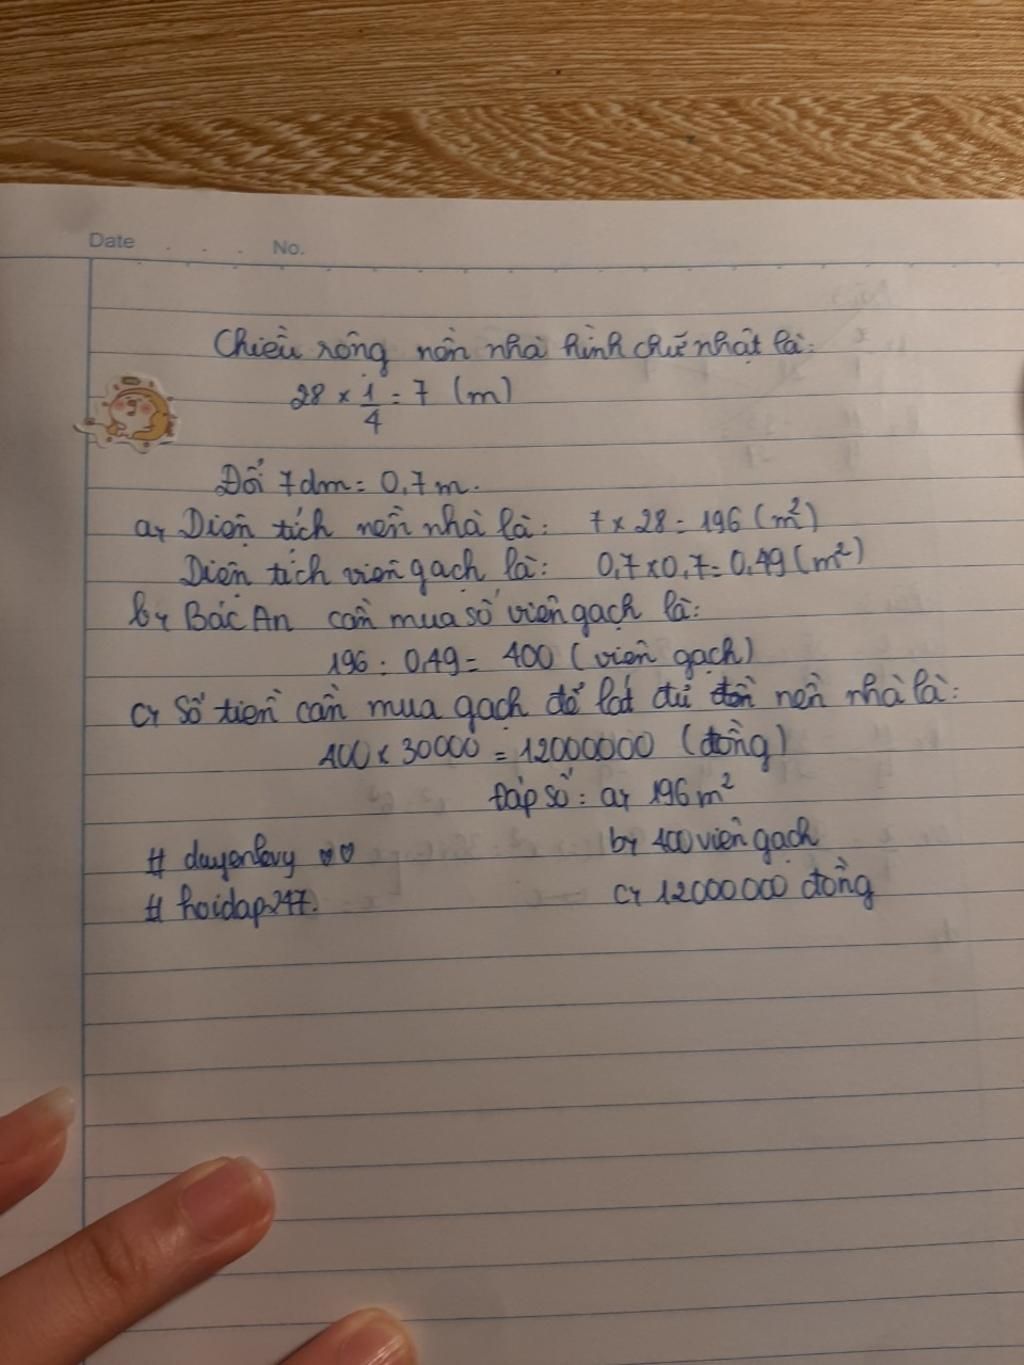 Date . . . No.
Chiều rộng nền nhà hình chữ nhật là:
28 × 1/4 = 7 (m)
Đổi 7dm = 0,7m.
a, Diện tích nền nhà là: 7 × 28 = 196 (m²)
Diện tích viên gạch là: 0,7 × 0,7 = 0,49 (m²)
b, Bác An cần mua số viên gạch là:
196 : 0,49 = 400 (viên gạch)
c, Số tiền cần mua gạch để lát đủ nền nhà là:
400 × 30000 = 12000000 (đồng)
Đáp số: a, 196 m²
b, 400 viên gạch
c, 12000000 đồng
# duyenlevy ♥♥
# hoidap247.